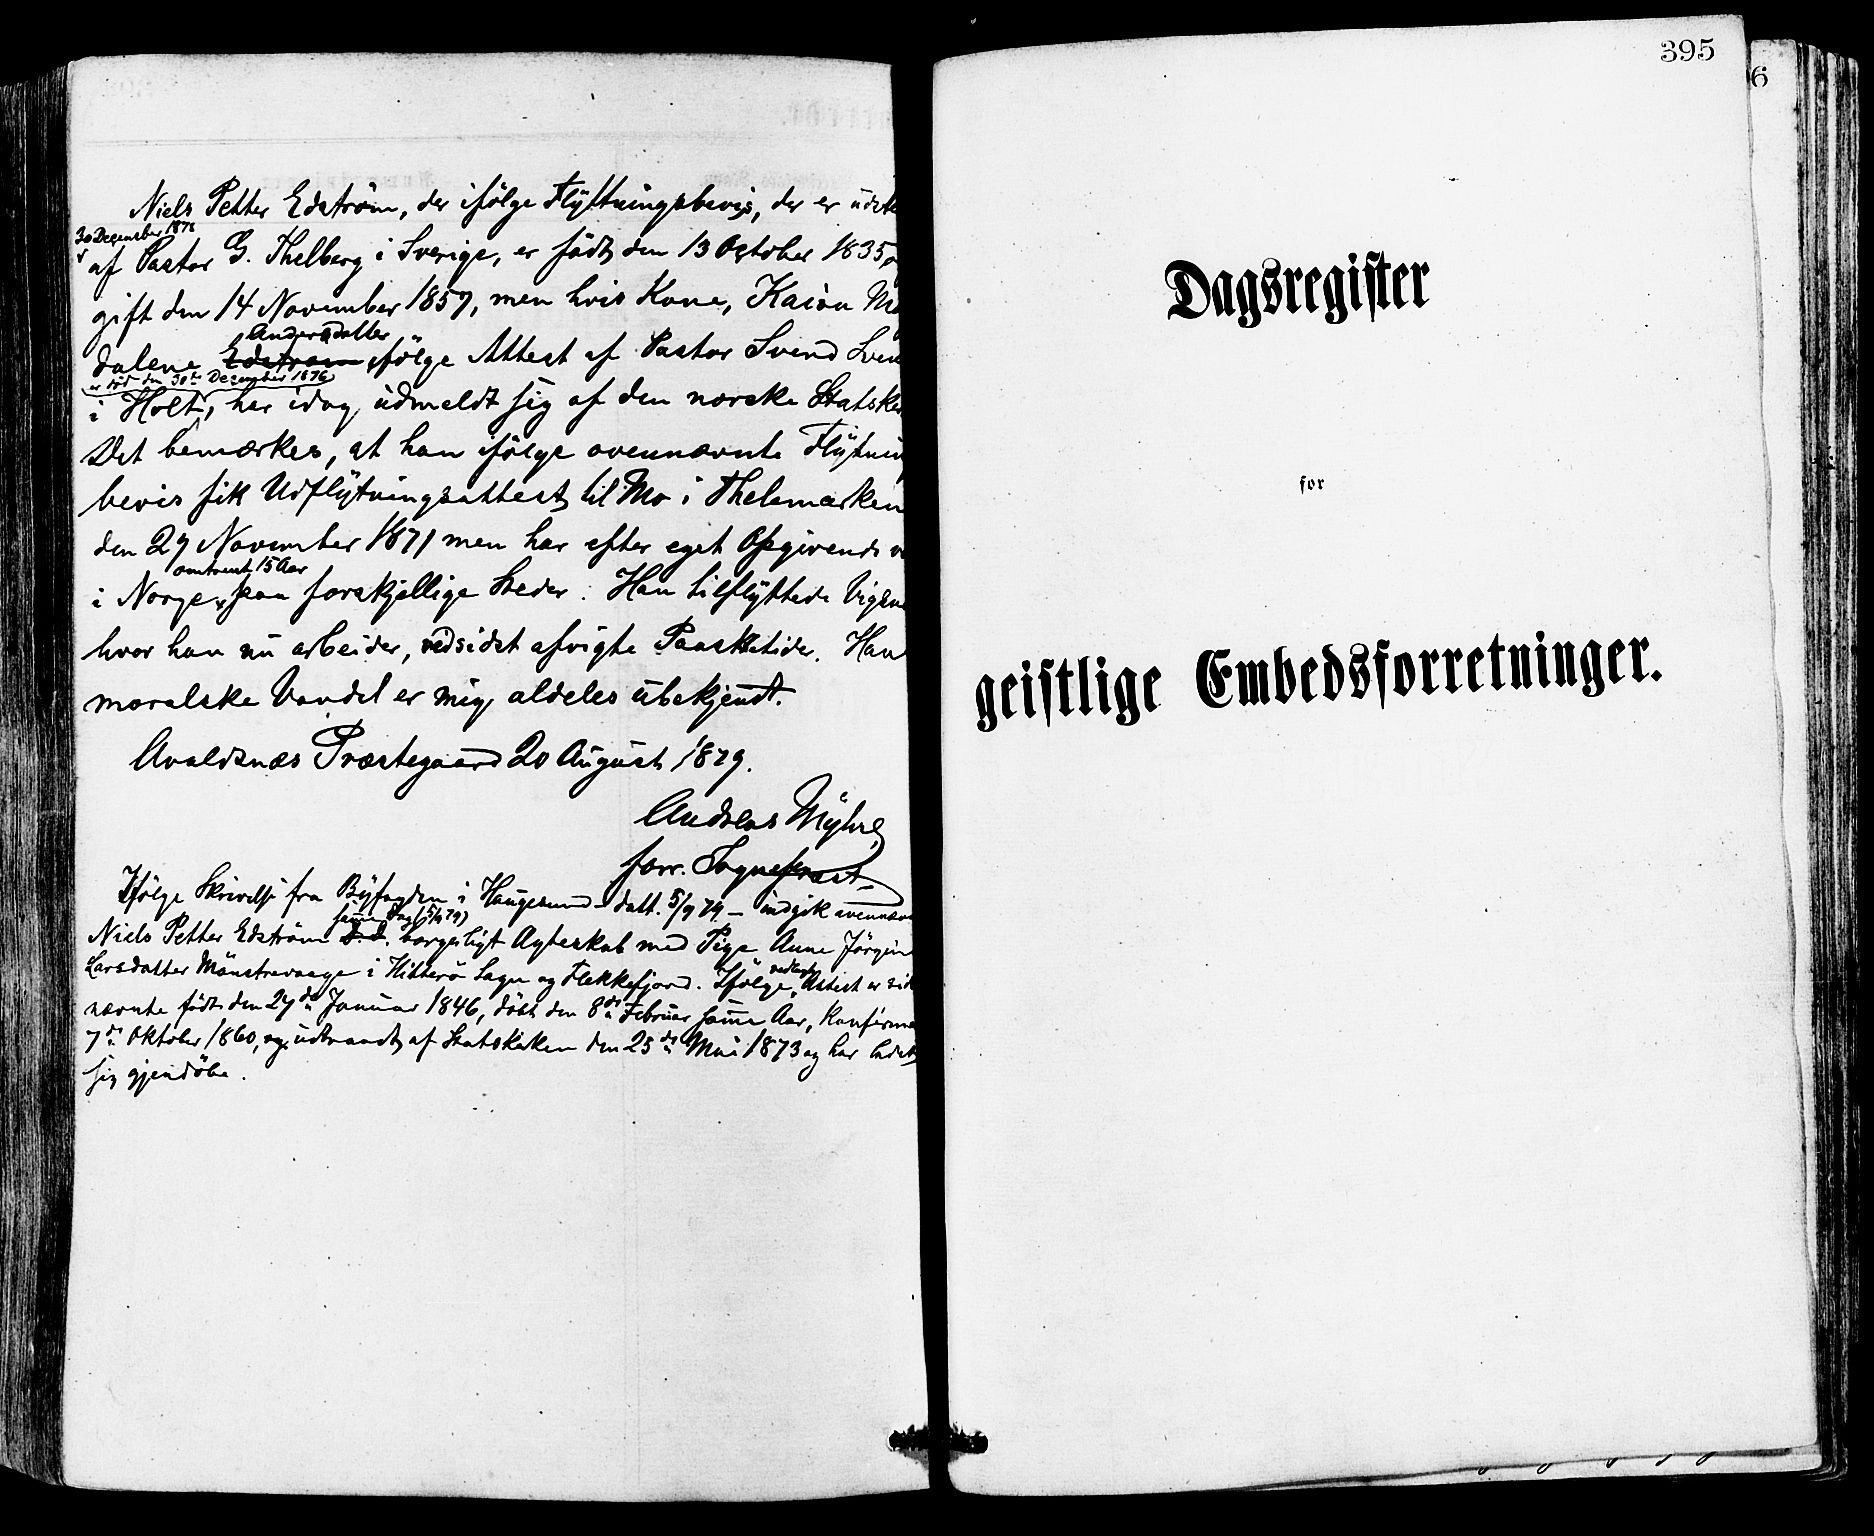 Niels Petter Edström, der ifölge Flyttningsbevis, der er udste
30 Dezember 1878
af Pastor G. Thelberg i Sverige, er födt den 13 October 1835,
gift den 14 November 1857, men hvis Kone, Kaisa Ma
Andersdatter
dalene Edstrøm ifölge Attest af Pastor Svend Sven
er död den 30te Dezember 1876
i Holt, har idag udmeldt sig af den norske Statskir
Det bemærkes, at han ifölge ovennævnte Flytnin
bevis fik Udflytningsattest til Mo i Thelemarken
den 27 November 1871 men har efter eget Opgivende v
omtrent 15 Aar
i Norge paa forskjellige Steder. Han tilflyttede Vigsn
hvor han nu arbeider, ved sidst afvigte Paasketider. Han
moralske Vandel er mig aldeles ubekjendt.
Avaldsnæs Præstegaard 20 August 1879.
Andreas Myhre
forr. Sognepræst
Ifölge Skrivelse fra Byfogden i Haugesund - datt. 5/9 79 - indgik ovennævn
samme Dag (5/9 79)
Niels Petter Edström d.d. borgerligt Ægteskab med Pige Anne Jörgine
Larsdatter Mönstrevaage i Hitterö Sogn og Flekkefjord. Ifölge vedlagt Attest er sid
nævnte födt den 27de Januar 1846, döbt den 8de Februar samme Aar, konfirme
7de Oktober 1860, og udtraadt af Statskirken den 25de Mai 1873 og har ladet
sig gjendöbe.
395
6
Dagsregister
for
geistlige Embedsforretninger.